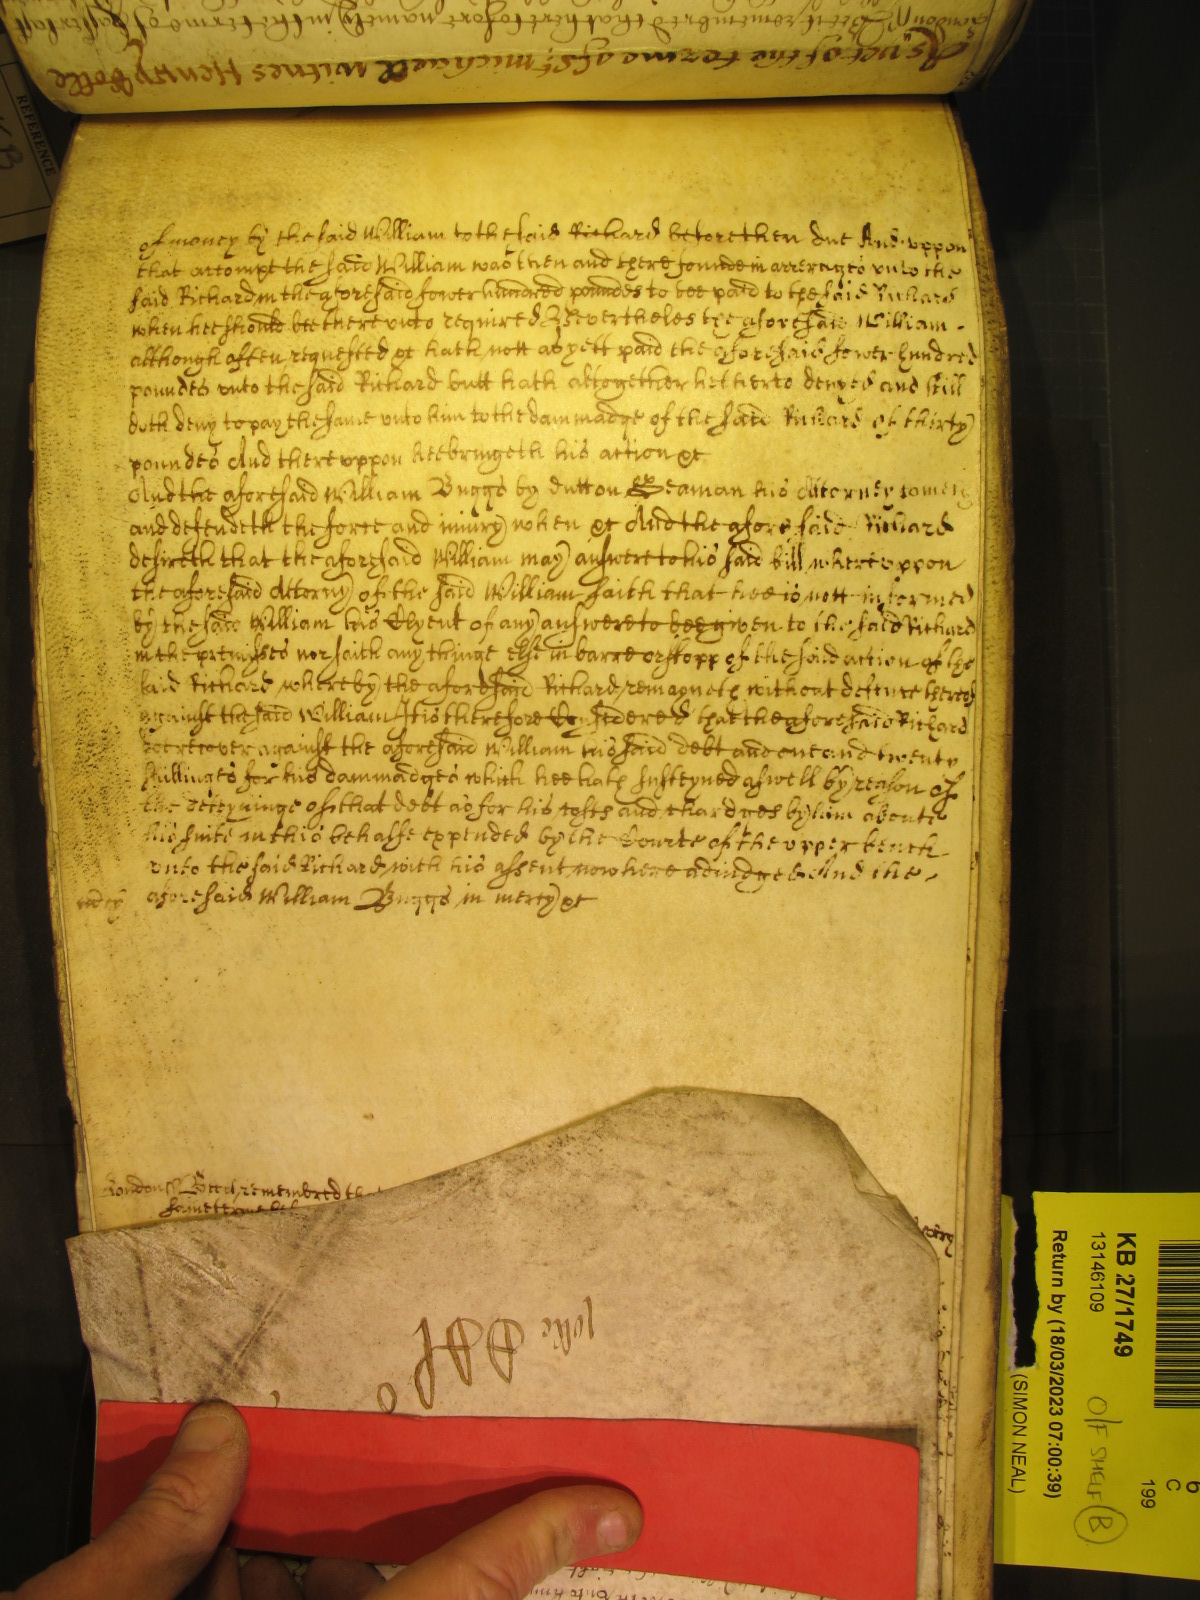 As yet of the terme of St. Michaell witnes Henry Rolle
of money by the said William to the said Richard before then due And uppon
that attompt the said William was then and there founde in arrerages unto the
said Richard in the aforesaid fower hundred poundes to bee paid to the said Richard
when hee should bee thereunto required Nevertheles the aforesaid William
although often requested &c hath nott as yett paid the aforesaid fower hundred
poundes unto the said Richard butt hath altogether hitherto denyed and still
doth deny to pay the same unto him to the dammadge of the said Richard of thirty
poundes And thereuppon hee bringeth his action &c
And the aforesaid William Buggs by dutton Seaman his Attorney comes
and defendeth the force and injury when &c And the aforesaid Richard
desireth that the aforesaid William may answere to his said bill whereuppon
the aforesaid Attorny of the said William saith that hee is nott informed
by the said William his Clyent of any answere to bee given to the said Richard
in the premisses nor saith any thinge else in barre or stopp of the said action of the
said Richard whereby the aforesaid Richard remayneth without defence thereof
against the said William Itis therefore Considered that the aforesaid Richard
doe recover against the aforesaid William his said debt and one and twenty
shillinges for his dammadges which hee hath susteyned aswell by reason of
the deteyninge of that debt as for his costs and chardges by him about
his suite in this behalfe expended by the Courte of the upper bench
unto the said Richard with his assent nowhere adiudged And the
mercy aforesaid William Buggs in mercy &c
London ss Bee it remembred that
REFERENCE
KB 27/1749
13146109
Return by (18/03/2023 07:00:39)
(SIMON NEAL)
O/F SHELF B
6
C
199